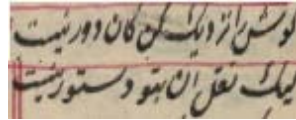 گوش را نزدیک کن کان دور نیست
لیک نقل آن بتو دستور نیست